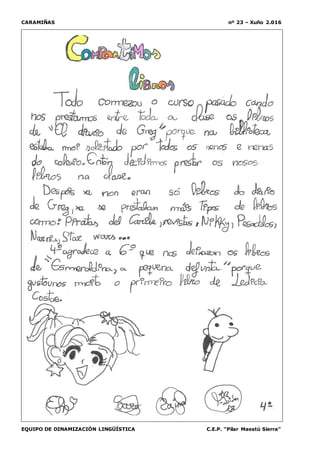 CARAMIÑAS nº 23 – Xuño 2.016
Compartimos
libros
Todo comezou o curso pasado cando
nos prestamos entre toda a clase os libros
de "El diario de Greg" porque na biblioteca
estaba moi solicitado por todos os nenos e nenas
do colexio. Entón decidimos prestar os nosos
libros na clase.
Despois xa non eran só libros do diario
de Greg, xa se prestaban máis tipos de libros
como: Piratas del Caribe, revistas, Nikky, Pesadillas,
Star wars...
4º agradece a 6º que nos deixaran os libros
de "Esmeraldina, a pequena defunta" porque
gustounos moito o primeiro libro de Ledicia
Costas.
4º
EQUIPO DE DINAMIZACIÓN LINGÜÍSTICA C.E.P. "Pilar Maestú Sierra"